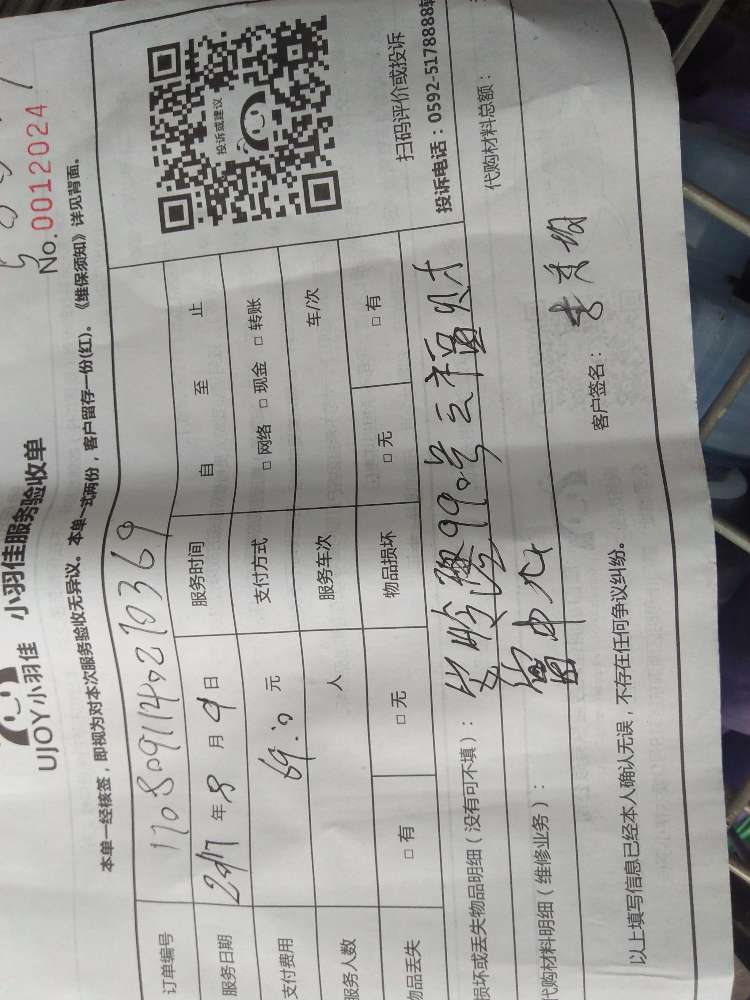 No.0012024
UJOY小羽佳 小羽佳服务验收单
本单一经核签，即视为对本次服务验收无异议。本单一式两份，客户留存一份(红)。《维保须知》详见背面。
订单编号 170809114210369
服务日期 2017年8月9日 服务时间 自 至 止
支付费用 69.00元 支付方式 □网络 □现金 □转账
服务人数 人 服务车次 车/次
物品丢失 □有 □无 物品损坏 □无 □有
投诉或建议
扫码评价或投诉
投诉电话：0592-5178888转
损坏或丢失物品明细（没有可不填）： 990号
中心
代购材料明细（维修业务）： 代购材料总额：
以上填写信息已经本人确认无误，不存在任何争议纠纷。 客户签名：